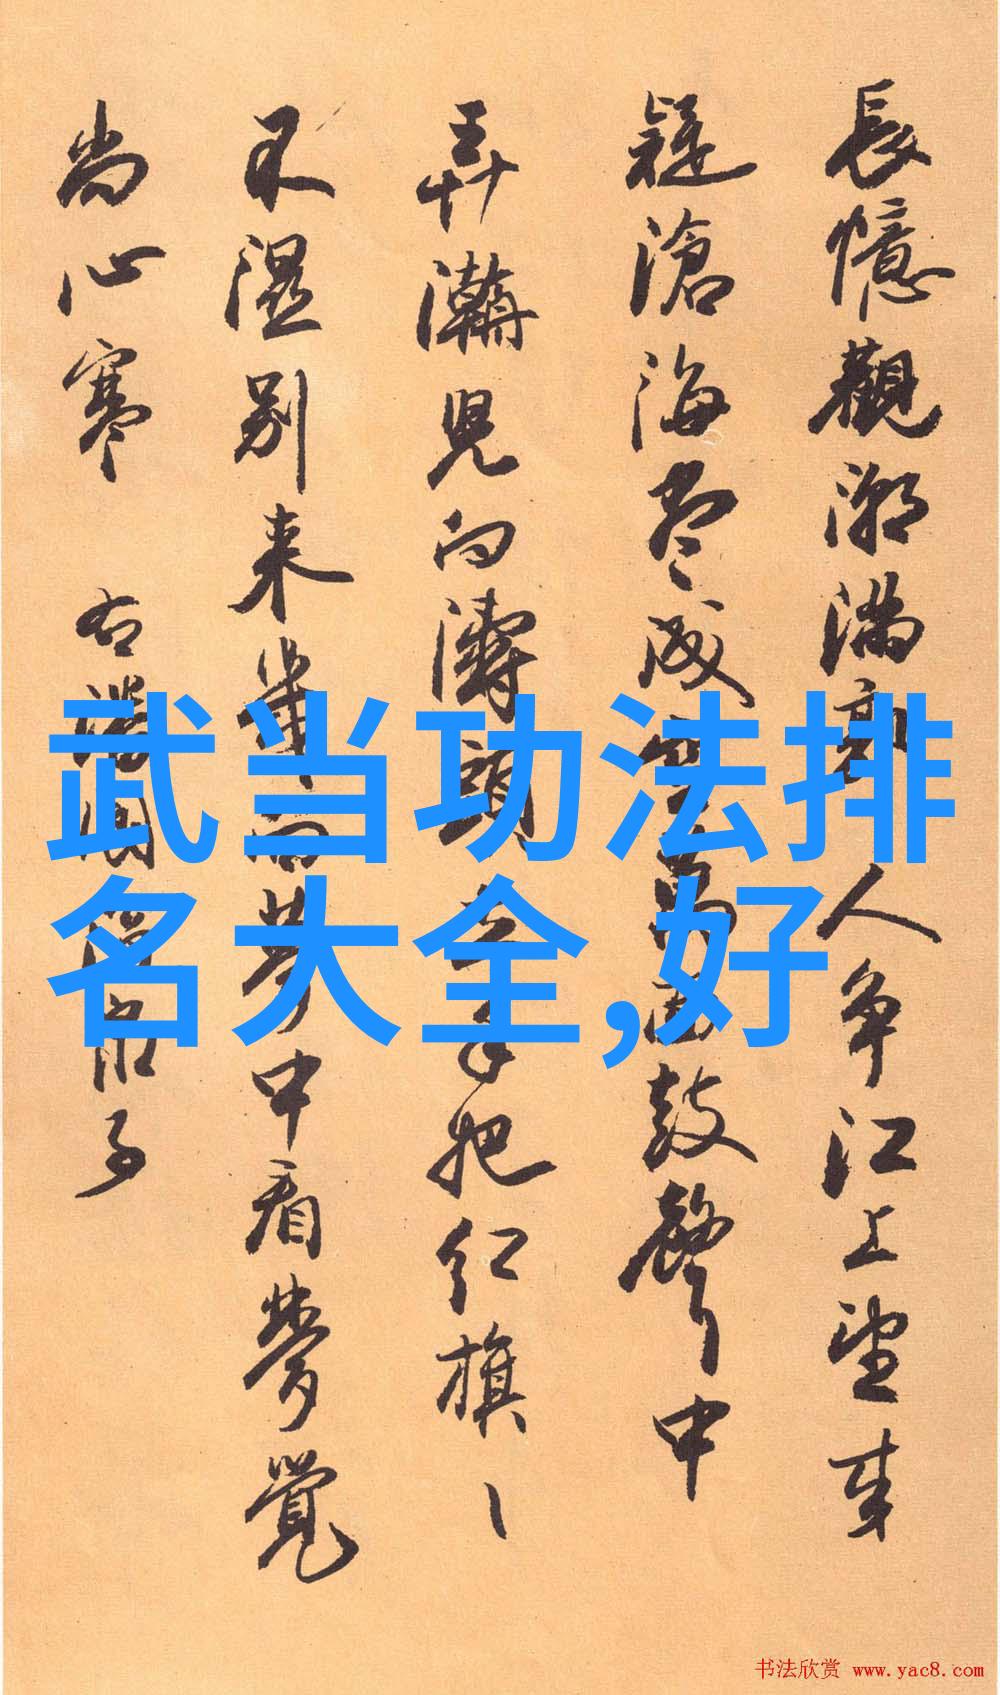 長憶觀潮滿郭人爭江上望來
疑滄海盡成空萬面鼓聲中
弄濤兒向濤頭立手把紅旗旗
不濕別來幾向夢中看夢覺
尚心寒 右潘閬酒泉子
武当功法排
名大全,好
书法欣赏 www.yac8.com